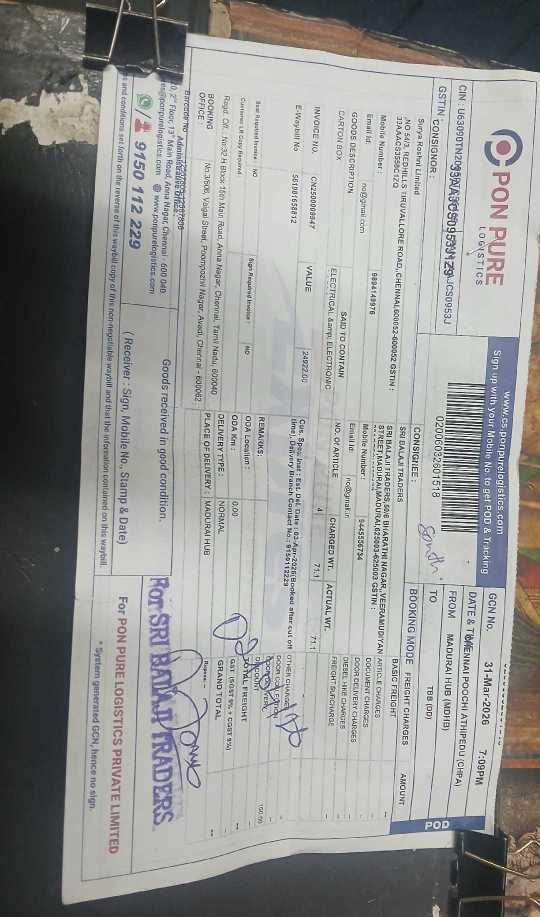 PON PURE
LOGISTICS
www.cs.ponpurelogistics.com
Sign up with your Mobile No to get POD & Tracking
02006032601518
GCN No.
DATE & TIME
31-Mar-2026 7:09PM
FROM CHENNAI POOCHI ATHIPEDU (CHPA)
TO MADURAI HUB (MDHB)
BOOKING MODE TBB (OD)
POD
GSTIN :
CONSIGNOR :
Surya Roshni Limited
NO 54/3, REDHILLS TIRUVALLORE ROAD, CHENNAI,600052-600052 GSTIN :
33AAACS3558C1ZO
Mobile Number : 9894149976
Email Id: no@gmail.com
CONSIGNEE :
SRI BALAJI TRADERS
SRI BALAJI TRADERS,50/6 BHARATHI NAGAR,,VEERAMUDIYAN
STREET,MADURAI,MADURAI,625003-625003 GSTIN :
Mobile Number : 9445556734
Email Id: no@gmail.in
GOODS DESCRIPTION SAID TO CONTAIN NO. OF ARTICLE CHARGED WT. ACTUAL WT.
CARTON BOX ELECTRICAL &amp; ELECTRONIC 4 71.1 71.1
INVOICE NO. CN2500009947 VALUE 24922.00
E-Waybill No 561981658812
Cus. Spec. Inst : Est. Del. Date : 03-Apr-2026(Booked after cut off
time), Delivery Branch Contact No.: 9150112229
REMARKS:
Seal Required Invoice : NO
Sign Required Invoice : NO
Customer LR Copy Required
ODA Location :
ODA Km : 0.00
DELIVERY TYPE : NORMAL
PLACE OF DELIVERY : MADURAI HUB
Regd. Off. : No:32 H Block 15th Main Road, Anna Nagar, Chennai, Tamil Nadu, 600040
BOOKING
OFFICE
No:3/608, Vaigai Street, Poompozhil Nagar, Avadi, Chennai - 600062
FREIGHT CHARGES AMOUNT
BASIC FREIGHT
ARTICLE CHARGES
DOCUMENT CHARGES
DOOR DELIVERY CHARGES
DIESEL HIKE CHARGES
FREIGHT SURCHARGE
OTHER CHARGES
DOOR COLLECTION
DISCOUNT 100.00
TOTAL FREIGHT
GST (SGST 9% + CGST 9%)
GRAND TOTAL
Barcode No
Administrative Office :
2nd Floor, 13th Main Road, Anna Nagar, Chennai - 600 040
@ponpurelogistics.com www.ponpurelogistics.com
9150 112 229
Goods received in good condition.
( Receiver : Sign, Mobile No., Stamp & Date)
For SRI BALAJI TRADERS
For PON PURE LOGISTICS PRIVATE LIMITED
* System generated GCN, hence no sign.
and conditions set forth on the reverse of this waybill copy of this non-negotiable waybill and that the information contained on this waybill.